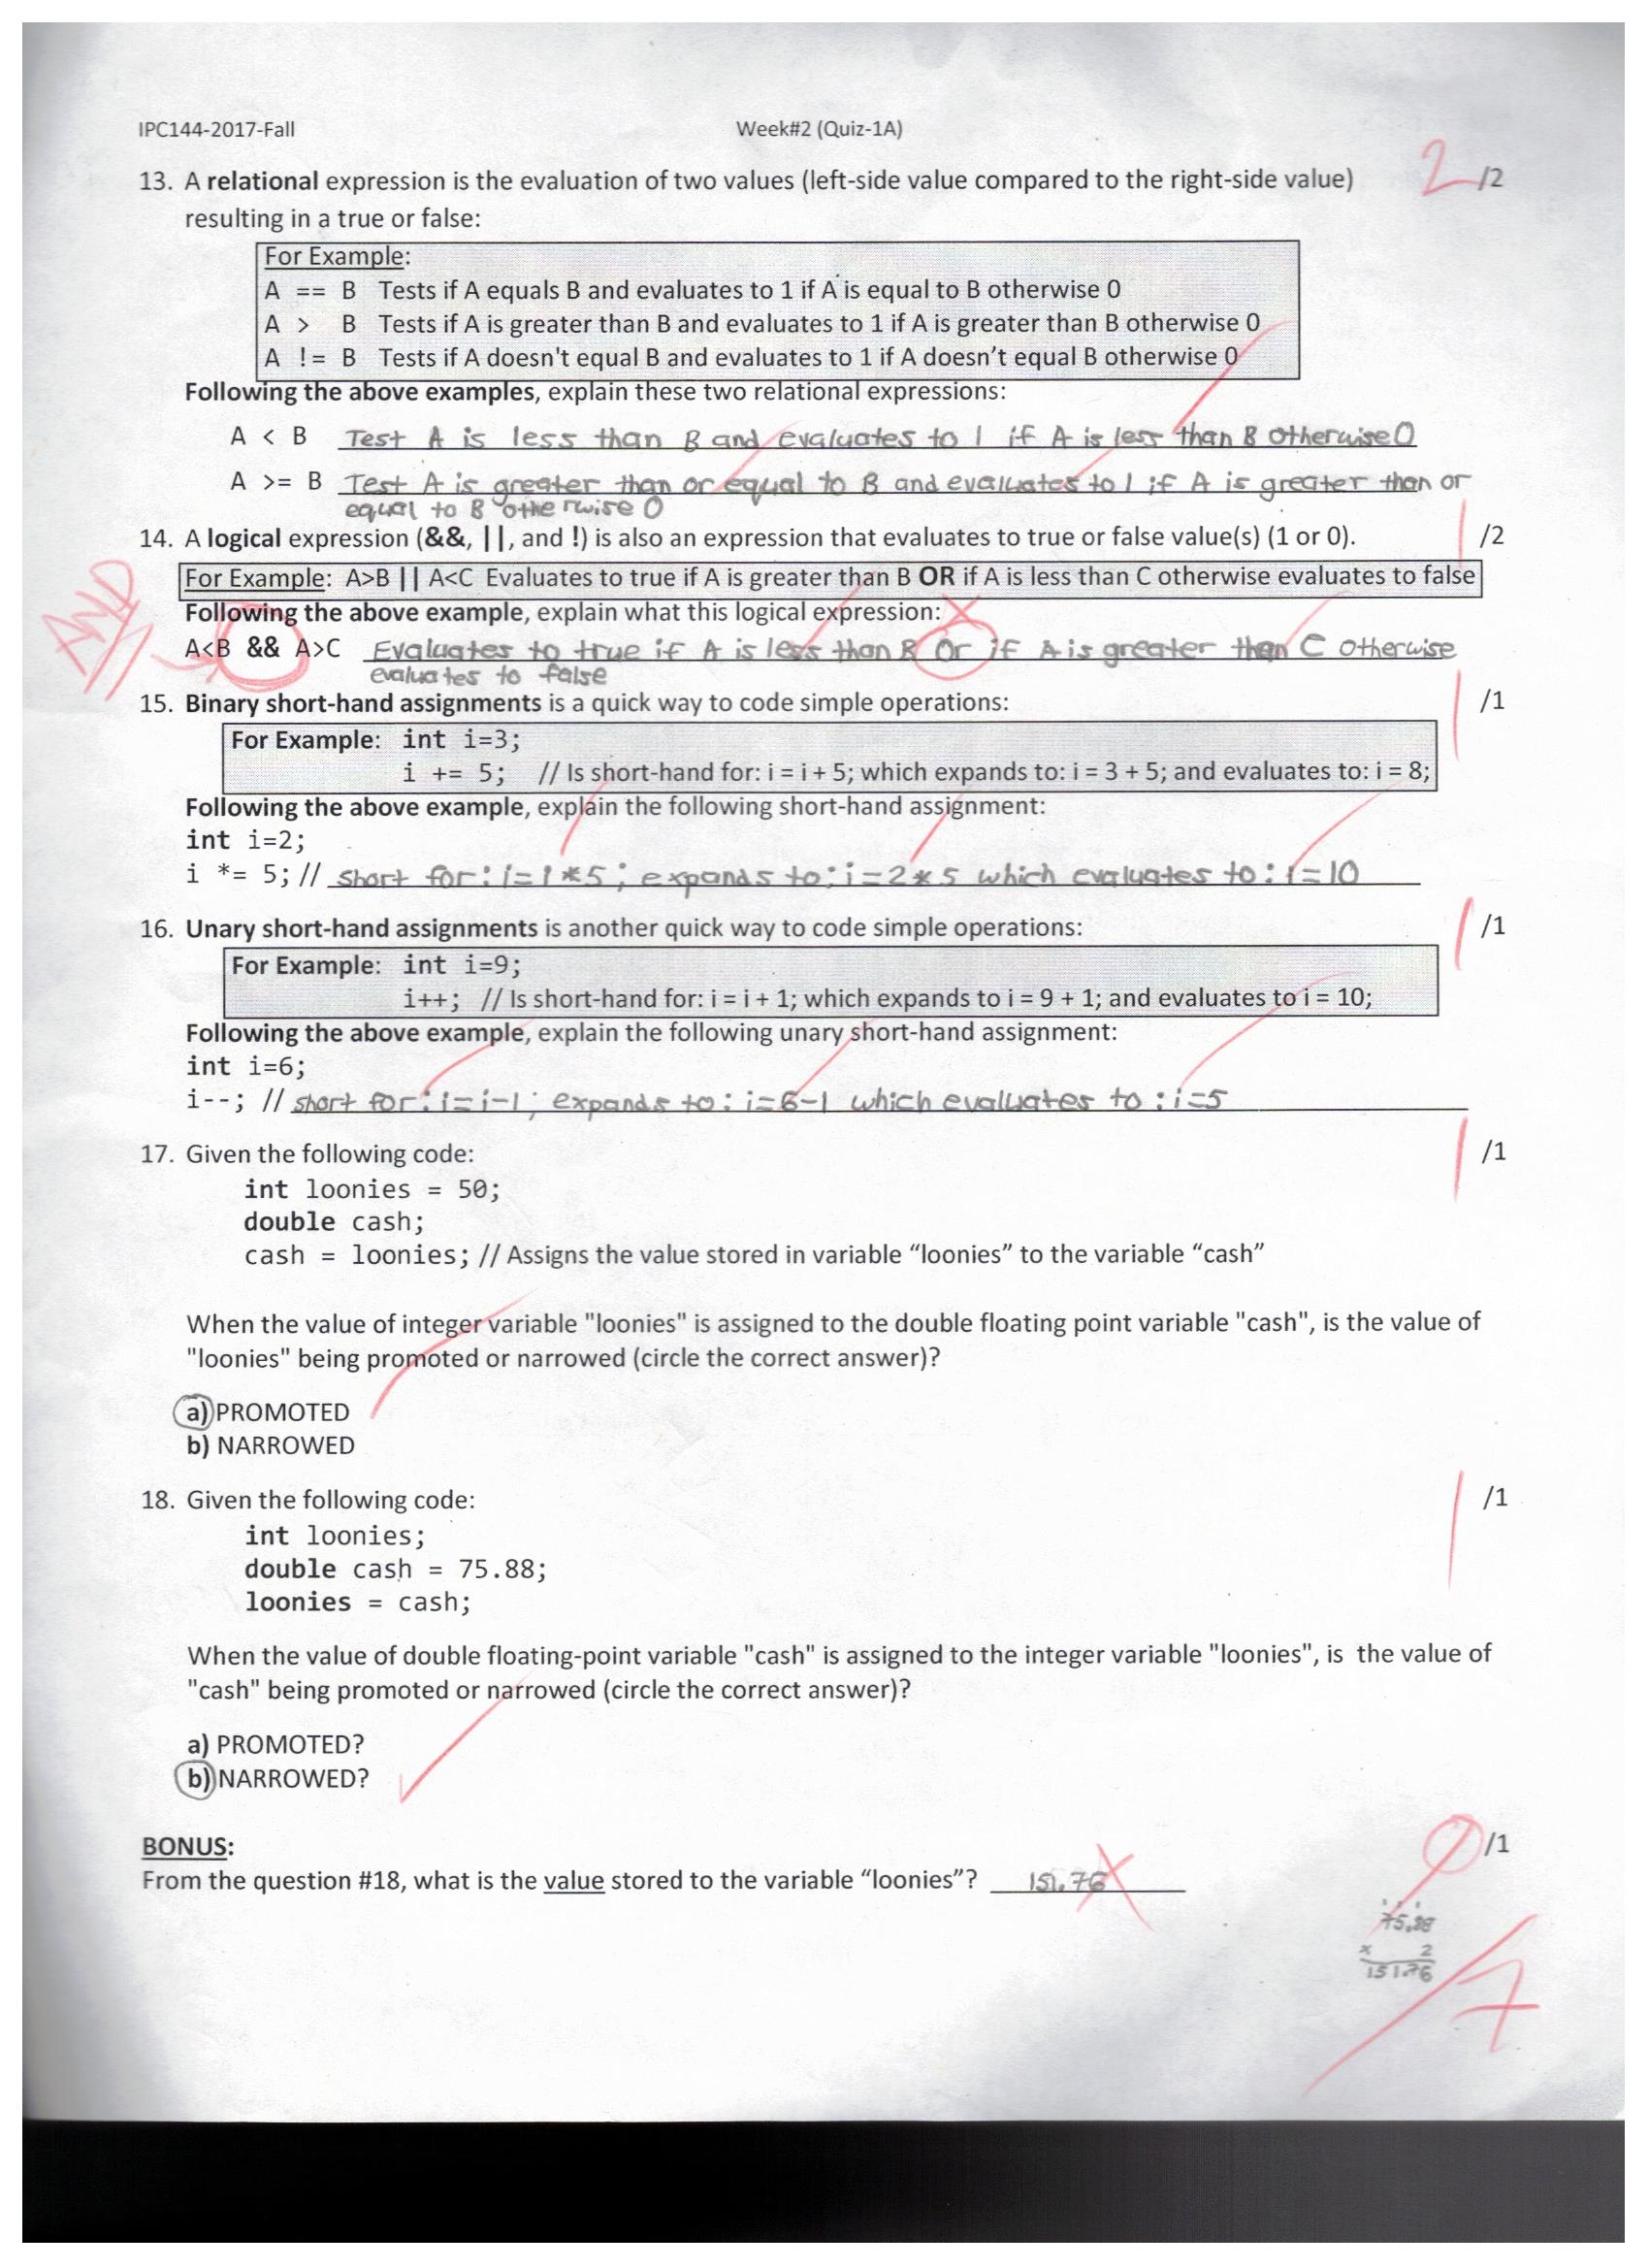 IPC144-2017-Fall Week#2 (Quiz-1A)
13. A relational expression is the evaluation of two values (left-side value compared to the right-side value) 2 /2
resulting in a true or false:
For Example:
A == B Tests if A equals B and evaluates to 1 if A is equal to B otherwise 0
A > B Tests if A is greater than B and evaluates to 1 if A is greater than B otherwise 0
A != B Tests if A doesn't equal B and evaluates to 1 if A doesn't equal B otherwise 0
Following the above examples, explain these two relational expressions:
A < B Test A is less than B and evaluates to 1 if A is less than B otherwise 0
A >= B Test A is greater than or equal to B and evaluates to 1 if A is greater than or
equal to B otherwise 0
14. A logical expression (&&, ||, and !) is also an expression that evaluates to true or false value(s) (1 or 0). 1 /2
For Example: A>B || A<C Evaluates to true if A is greater than B OR if A is less than C otherwise evaluates to false
AND
Following the above example, explain what this logical expression:
A<B && A>C Evaluates to true if A is less than B Or if A is greater than C otherwise
evaluates to false
15. Binary short-hand assignments is a quick way to code simple operations: 1 /1
For Example: int i=3;
i += 5; // Is short-hand for: i = i + 5; which expands to: i = 3 + 5; and evaluates to: i = 8;
Following the above example, explain the following short-hand assignment:
int i=2;
i *= 5; // short for: i=i*5; expands to: i=2*5 which evaluates to: i=10
16. Unary short-hand assignments is another quick way to code simple operations: 1 /1
For Example: int i=9;
i++; // Is short-hand for: i = i + 1; which expands to i = 9 + 1; and evaluates to i = 10;
Following the above example, explain the following unary short-hand assignment:
int i=6;
i--; // short for: i=i-1; expands to: i=6-1 which evaluates to: i=5
17. Given the following code: 1 /1
int loonies = 50;
double cash;
cash = loonies; // Assigns the value stored in variable "loonies" to the variable "cash"
When the value of integer variable "loonies" is assigned to the double floating point variable "cash", is the value of
"loonies" being promoted or narrowed (circle the correct answer)?
a) PROMOTED
b) NARROWED
18. Given the following code: 1 /1
int loonies;
double cash = 75.88;
loonies = cash;
When the value of double floating-point variable "cash" is assigned to the integer variable "loonies", is the value of
"cash" being promoted or narrowed (circle the correct answer)?
a) PROMOTED?
b) NARROWED?
BONUS: /1
From the question #18, what is the value stored to the variable "loonies"? 151.76
75.88
x 2
151.76
7